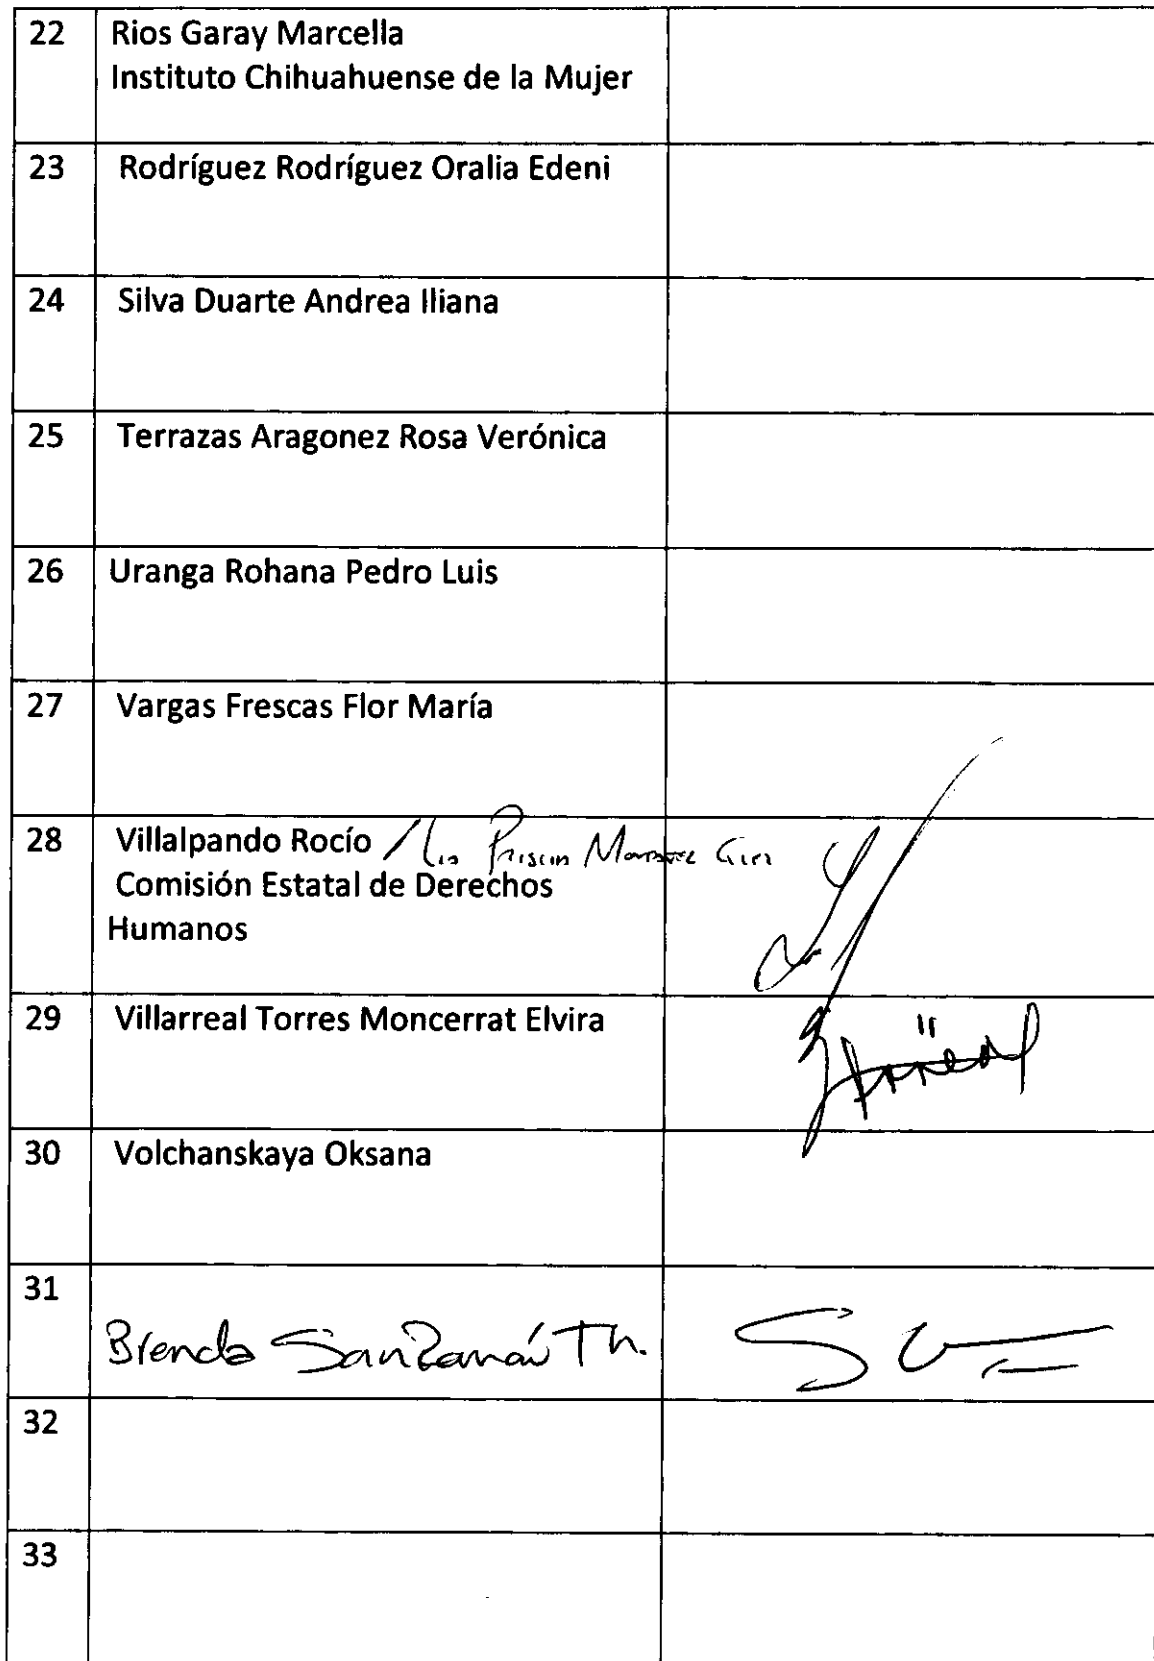 22 Rios Garay Marcella
Instituto Chihuahuense de la Mujer
23 Rodríguez Rodríguez Oralia Edeni
24 Silva Duarte Andrea Iliana
25 Terrazas Aragonez Rosa Verónica
26 Uranga Rohana Pedro Luis
27 Vargas Frescas Flor María
28 Villalpando Rocío /
Comisión Estatal de Derechos
Humanos
29 Villarreal Torres Moncerrat Elvira
30 Volchanskaya Oksana
31
Brenda Th.
32
33